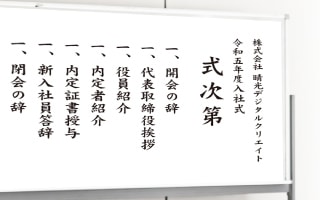 株式会社 晴光デジタルクリエイト
令和五年度入社式
式次第
一、開会の辞
一、代表取締役挨拶
一、役員紹介
一、内定者紹介
一、内定証書授与
一、新入社員答辞
一、閉会の辞